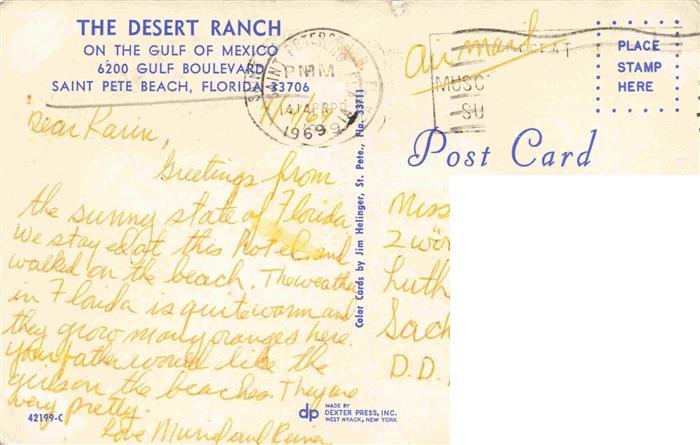 THE DESERT RANCH
ON THE GULF OF MEXICO
6200 GULF BOULEVARD
SAINT PETE BEACH, FLORIDA 33706
SAINT PETERSBURG, FLA
PM
14 APR
1969
Air mail
MUSC
SU
PLACE
STAMP
HERE
Post Card
Dear Karin,
Greetings from
the sunny state of Florida
We stayed at this hotel and
walked on the beach. The weather
in Florida is quite warm and
they grow many oranges here.
Your father would like the
girls on the beaches. They are
very pretty.
Love Murid and
Color Cards by Jim Helinger, St. Pete., Fla. 33711
Miss
2 wör
Luth
Sach
D.D.
42199-C
dp MADE BY
DEXTER PRESS, INC.
WEST NYACK, NEW YORK